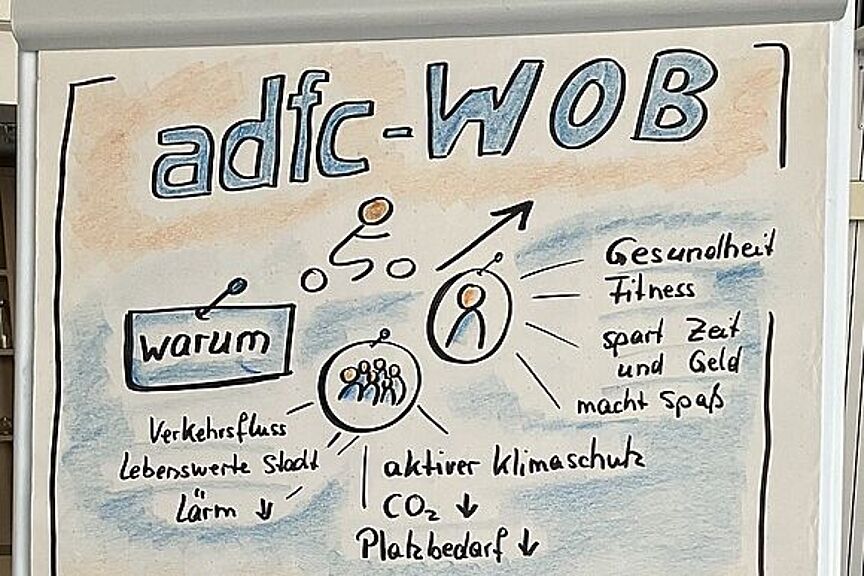 adfc-WOB
warum
Gesundheit
Fitness
spart Zeit
und Geld
macht Spaß
Verkehrsfluss
Lebenswerte Stadt
Lärm ↓
aktiver Klimaschutz
CO₂ ↓
Platzbedarf ↓